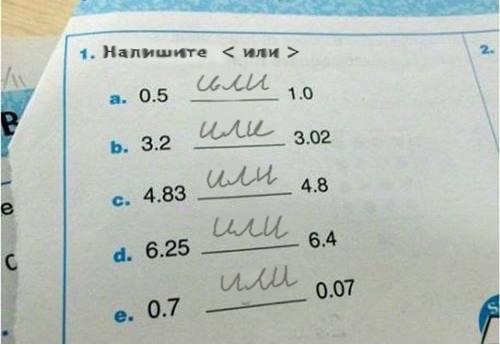 1. Напишите < или >
2.
a. 0.5 или 1.0
b. 3.2 или 3.02
c. 4.83 или 4.8
d. 6.25 или 6.4
e. 0.7 или 0.07
В
е
с